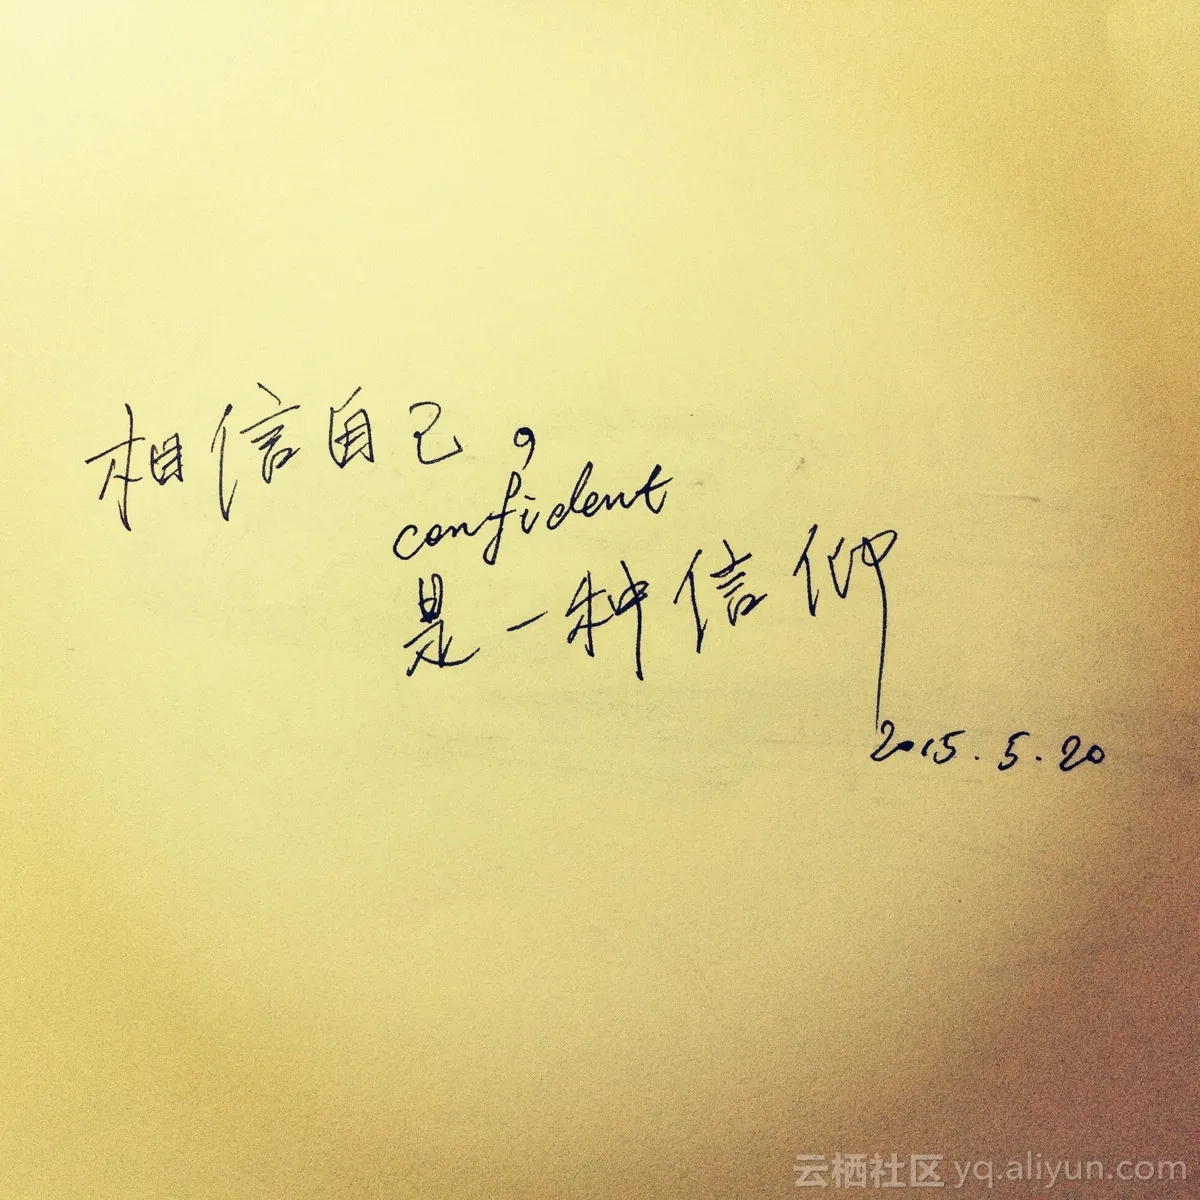 相信自己，
confident
是一种信仰
2015.5.20
云栖社区 yq.aliyun.com